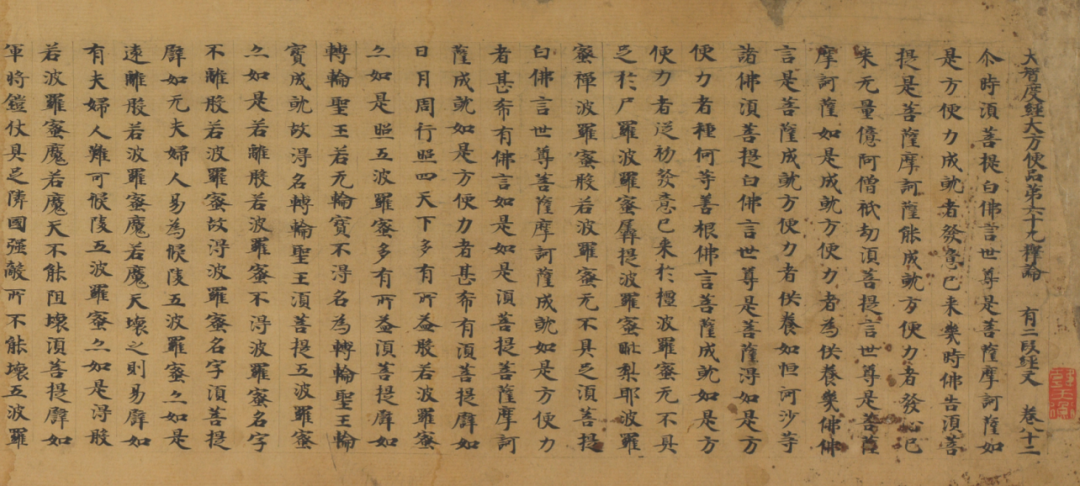 大智度經大方便品第六十九釋論　有二段經文　卷八十二
尒時須菩提白佛言世尊是菩薩摩訶薩如
是方便力成就者發意已来幾時佛告須菩
提是菩薩摩訶薩能成就方便力者發心已
来无量億阿僧祇劫須菩提言世尊是菩薩
摩訶薩如是成就方便力者為供養幾佛佛
言是菩薩成就方便力者供養如恒河沙等
諸佛須菩提白佛言世尊是菩薩得如是方
便力者種何等善根佛言菩薩成就如是方
便力者從初發意已来於檀波羅蜜无不具
足於尸羅波羅蜜羼提波羅蜜毗梨耶波羅
蜜禪波羅蜜般若波羅蜜无不具足須菩提
白佛言世尊菩薩摩訶薩成就如是方便力
者甚希有佛言如是如是須菩提菩薩摩訶
薩成就如是方便力者甚希有須菩提譬如
日月周行照四天下多有所益般若波羅蜜
亦如是照五波羅蜜多有所益須菩提譬如
轉輪聖王若无輪寶不得名為轉輪聖王輪
寶成就故得名轉輪聖王須菩提五波羅蜜
亦如是若離般若波羅蜜不得波羅蜜名字
不離般若波羅蜜故得波羅蜜名字須菩提
譬如无夫婦人易為侵陵五波羅蜜亦如是
遠離般若波羅蜜魔若魔天壞之則易譬如
有夫婦人難可侵陵五波羅蜜亦如是得般
若波羅蜜魔若魔天不能阻壞須菩提譬如
軍時鎧仗具足隣國强敵所不能壞五波羅